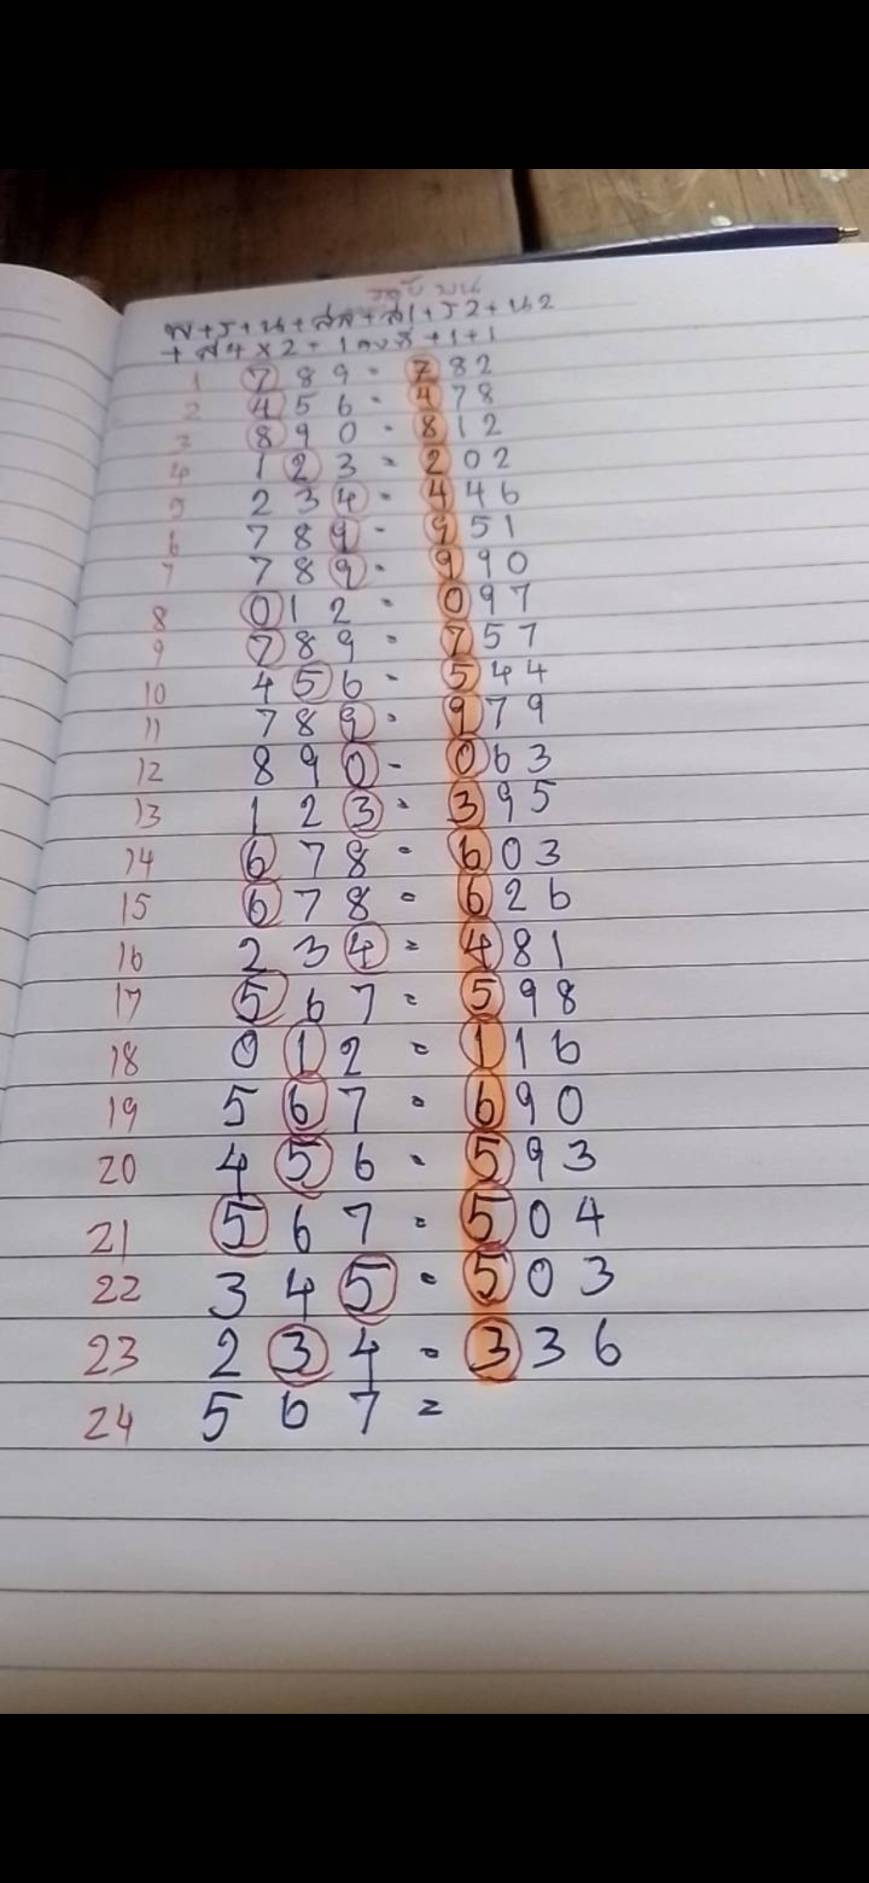 พ+ร+น+สส+ส1+ร2+น2
+ส4×2+1 +1+1
1 789=782
2 456=478
3 890=812
4 123=202
5 234=446
6 789=951
7 789=990
8 012=097
9 789=757
10 456=544
11 789=979
12 890=063
13 123=395
14 678=603
15 678=626
16 234=481
17 567=598
18 012=116
19 567=690
20 456=593
21 567=504
22 345=503
23 234=336
24 567=